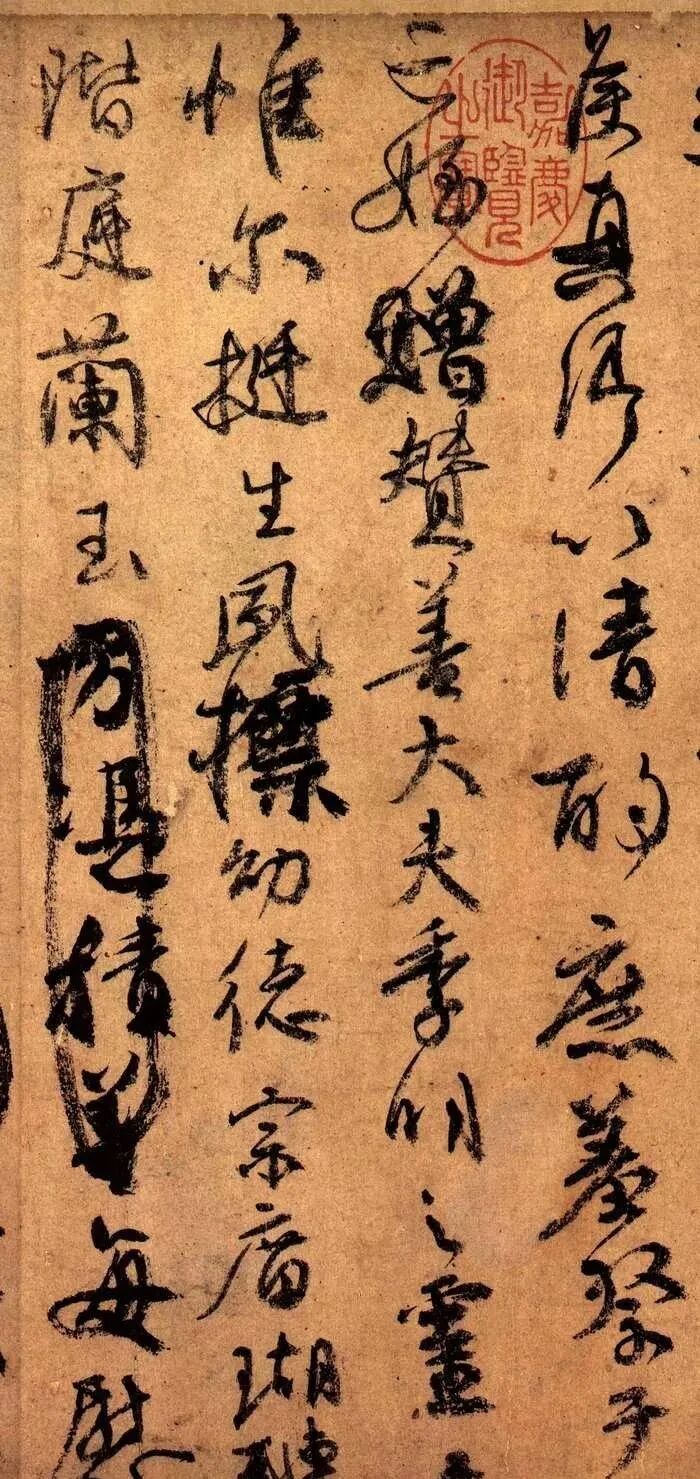 侯真卿以清酌庶羞祭于
亡姪贈賛善大夫季明之靈
惟尔挺生夙標幼德宗廟瑚璉
階庭蘭玉方憑積善每慰
嘉慶御覽之寶